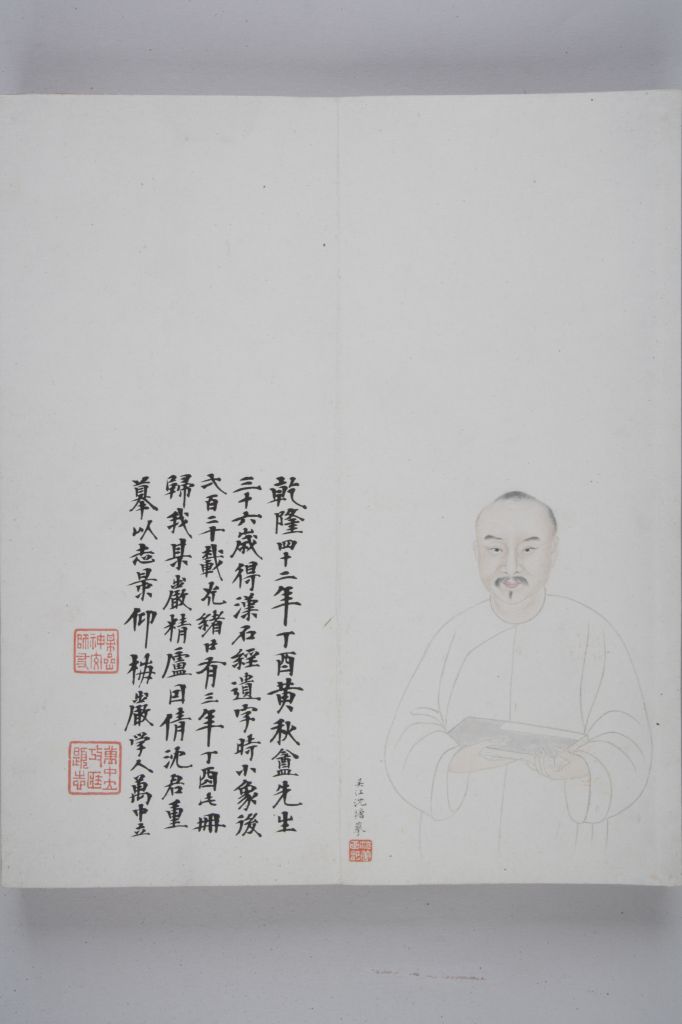 吳江沈塘摹
乾隆四十二年丁酉黃秋盦先生
三十六歲得漢石經遺字時小象後
弌百二十載光緒廿有三年丁酉此冊
歸我某巖精廬因倩沈君重
摹以志景仰 梅巖学人萬中立